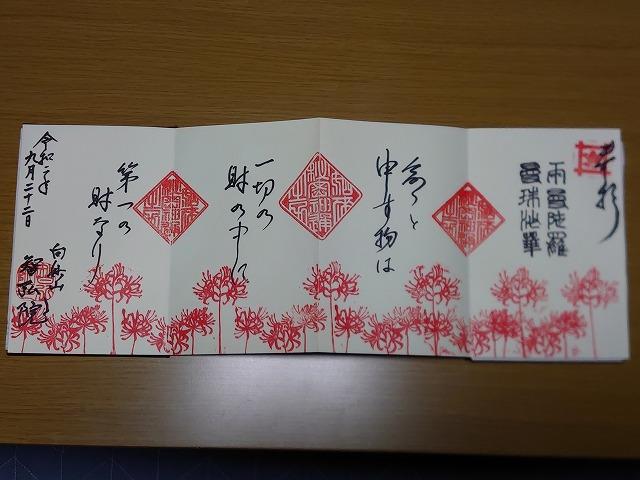 奉拝
雨曼陀羅
曼珠沙華
命と
申す物は
一切の
財の中に
第一の
財なり
令和二年
九月二十二日